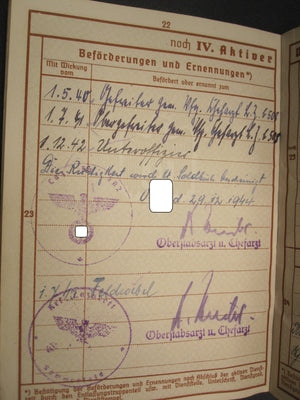 22
noch IV. Aktiver
Beförderungen und Ernennungen*)
Mit Wirkung vom
Befördert oder ernannt zum
1.5.40 Gefreiter gem. Vfg. Chefarzt L.Z. 6500
1.7.41 Obergefreiter gem. Vfg. Chefarzt L.Z. 6500
1.12.42 Unteroffizier
Die Richtigkeit wird lt. Soldbuch bescheinigt
29.12.1944
23
Oberstabsarzt u. Chefarzt
Feldwebel
Oberstabsarzt u. Chefarzt
*) Bestätigung der Beförderungen und Ernennungen nach Abschluß der aktiven Dienst-
zeit durch den Entlassungstruppenteil usw. mit Dienststelle, Unterschrift, Dienstgrad,